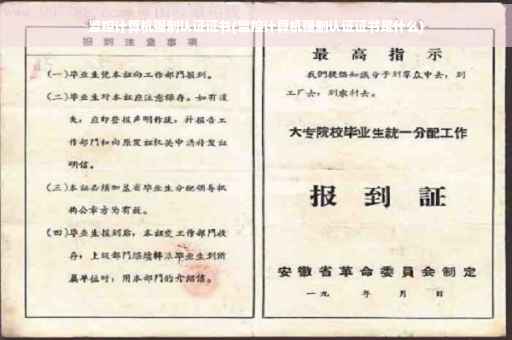 监控计算机强制认证证书(监控计算机强制认证证书是什么)
报到注意事項
(一)毕业生凭本证向工作部門报到。
(二)毕业生对本証应注意保存。如有遺
失，应即登报声明作废，并报告工
作部門和向原发証机关申請补发証
明信。
(三)本证必须加盖省毕业生分配领导机
构公章方为有效。
(四)毕业生报到后，本証交工作部門收
存；上级部門
毕业生到所
属单位时，用本部門的介紹信。
最高指示
我們提倡知識分子到羣众中去，到
工厂去，到农村去。
大专院校毕业生統一分配工作
报到証
安徽省革命委員会制定
一九　年　月　日